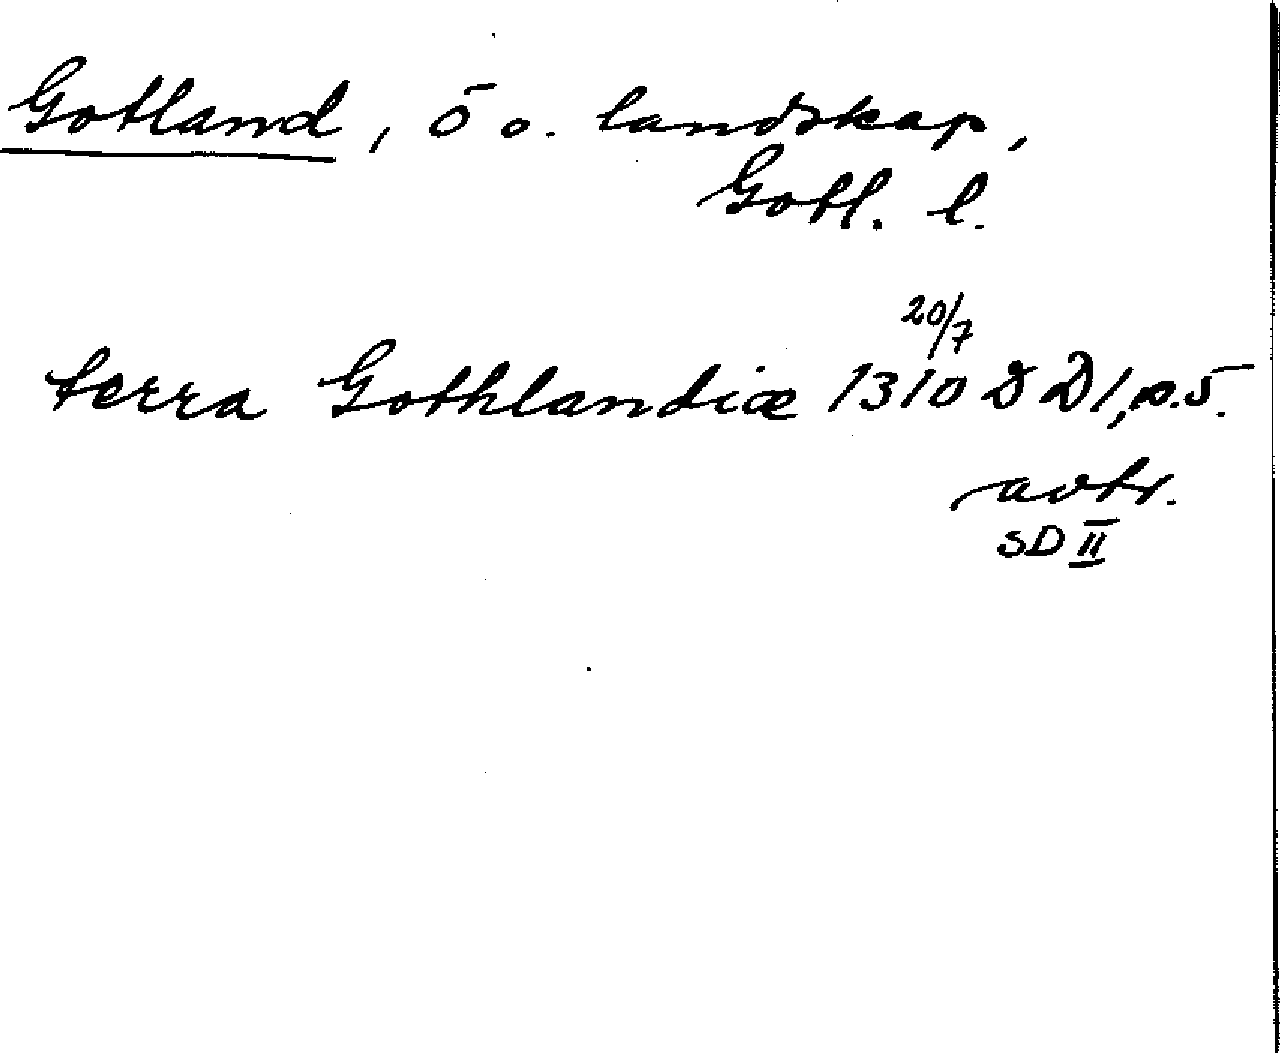 Gotland, ö o. landskap,
Gotl. l.
20/7
terra Gothlandiæ 1310 DD 1, p. 5.
avtr.
SD II